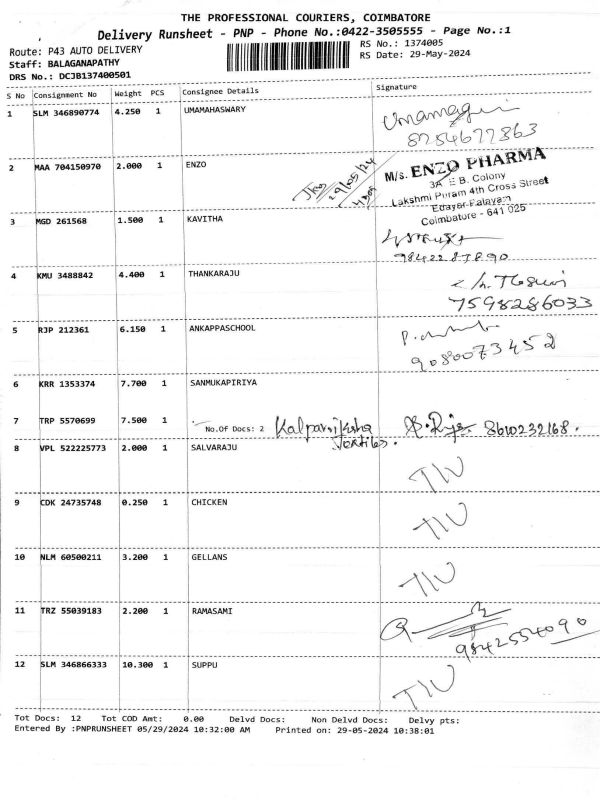 THE PROFESSIONAL COURIERS, COIMBATORE
Delivery Runsheet - PNP - Phone No.:0422-3505555 - Page No.:1
Route: P43 AUTO DELIVERY
RS No.: 1374005
Staff: BALAGANAPATHY
RS Date: 29-May-2024
DRS No.: DCJB137400501
S No Consignment No Weight PCS Consignee Details Signature
1 SLM 346890774 4.250 1 UMAMAHASWARY
8754677863
2 MAA 704150970 2.000 1 ENZO
29/05/24
M/s. ENZO PHARMA
3A, E B. Colony
Lakshmi Puram 4th Cross Street
Edayar Palayam
Coimbatore - 641 025
3 MGD 261568 1.500 1 KAVITHA
9842287890
4 KMU 3488842 4.400 1 THANKARAJU
7598286033
5 RJP 212361 6.150 1 ANKAPPASCHOOL
9080073452
6 KRR 1353374 7.700 1 SANMUKAPIRIYA
7 TRP 5570699 7.500 1
No.Of Docs: 2 8610232168.
8 VPL 522225773 2.000 1 SALVARAJU
9 CDK 24735748 0.250 1 CHICKEN
10 NLM 60500211 3.200 1 GELLANS
11 TRZ 55039183 2.200 1 RAMASAMI
9842554090
12 SLM 346866333 10.300 1 SUPPU
Tot Docs: 12 Tot COD Amt: 0.00 Delvd Docs: Non Delvd Docs: Delvy pts:
Entered By :PNPRUNSHEET 05/29/2024 10:32:00 AM Printed on: 29-05-2024 10:38:01